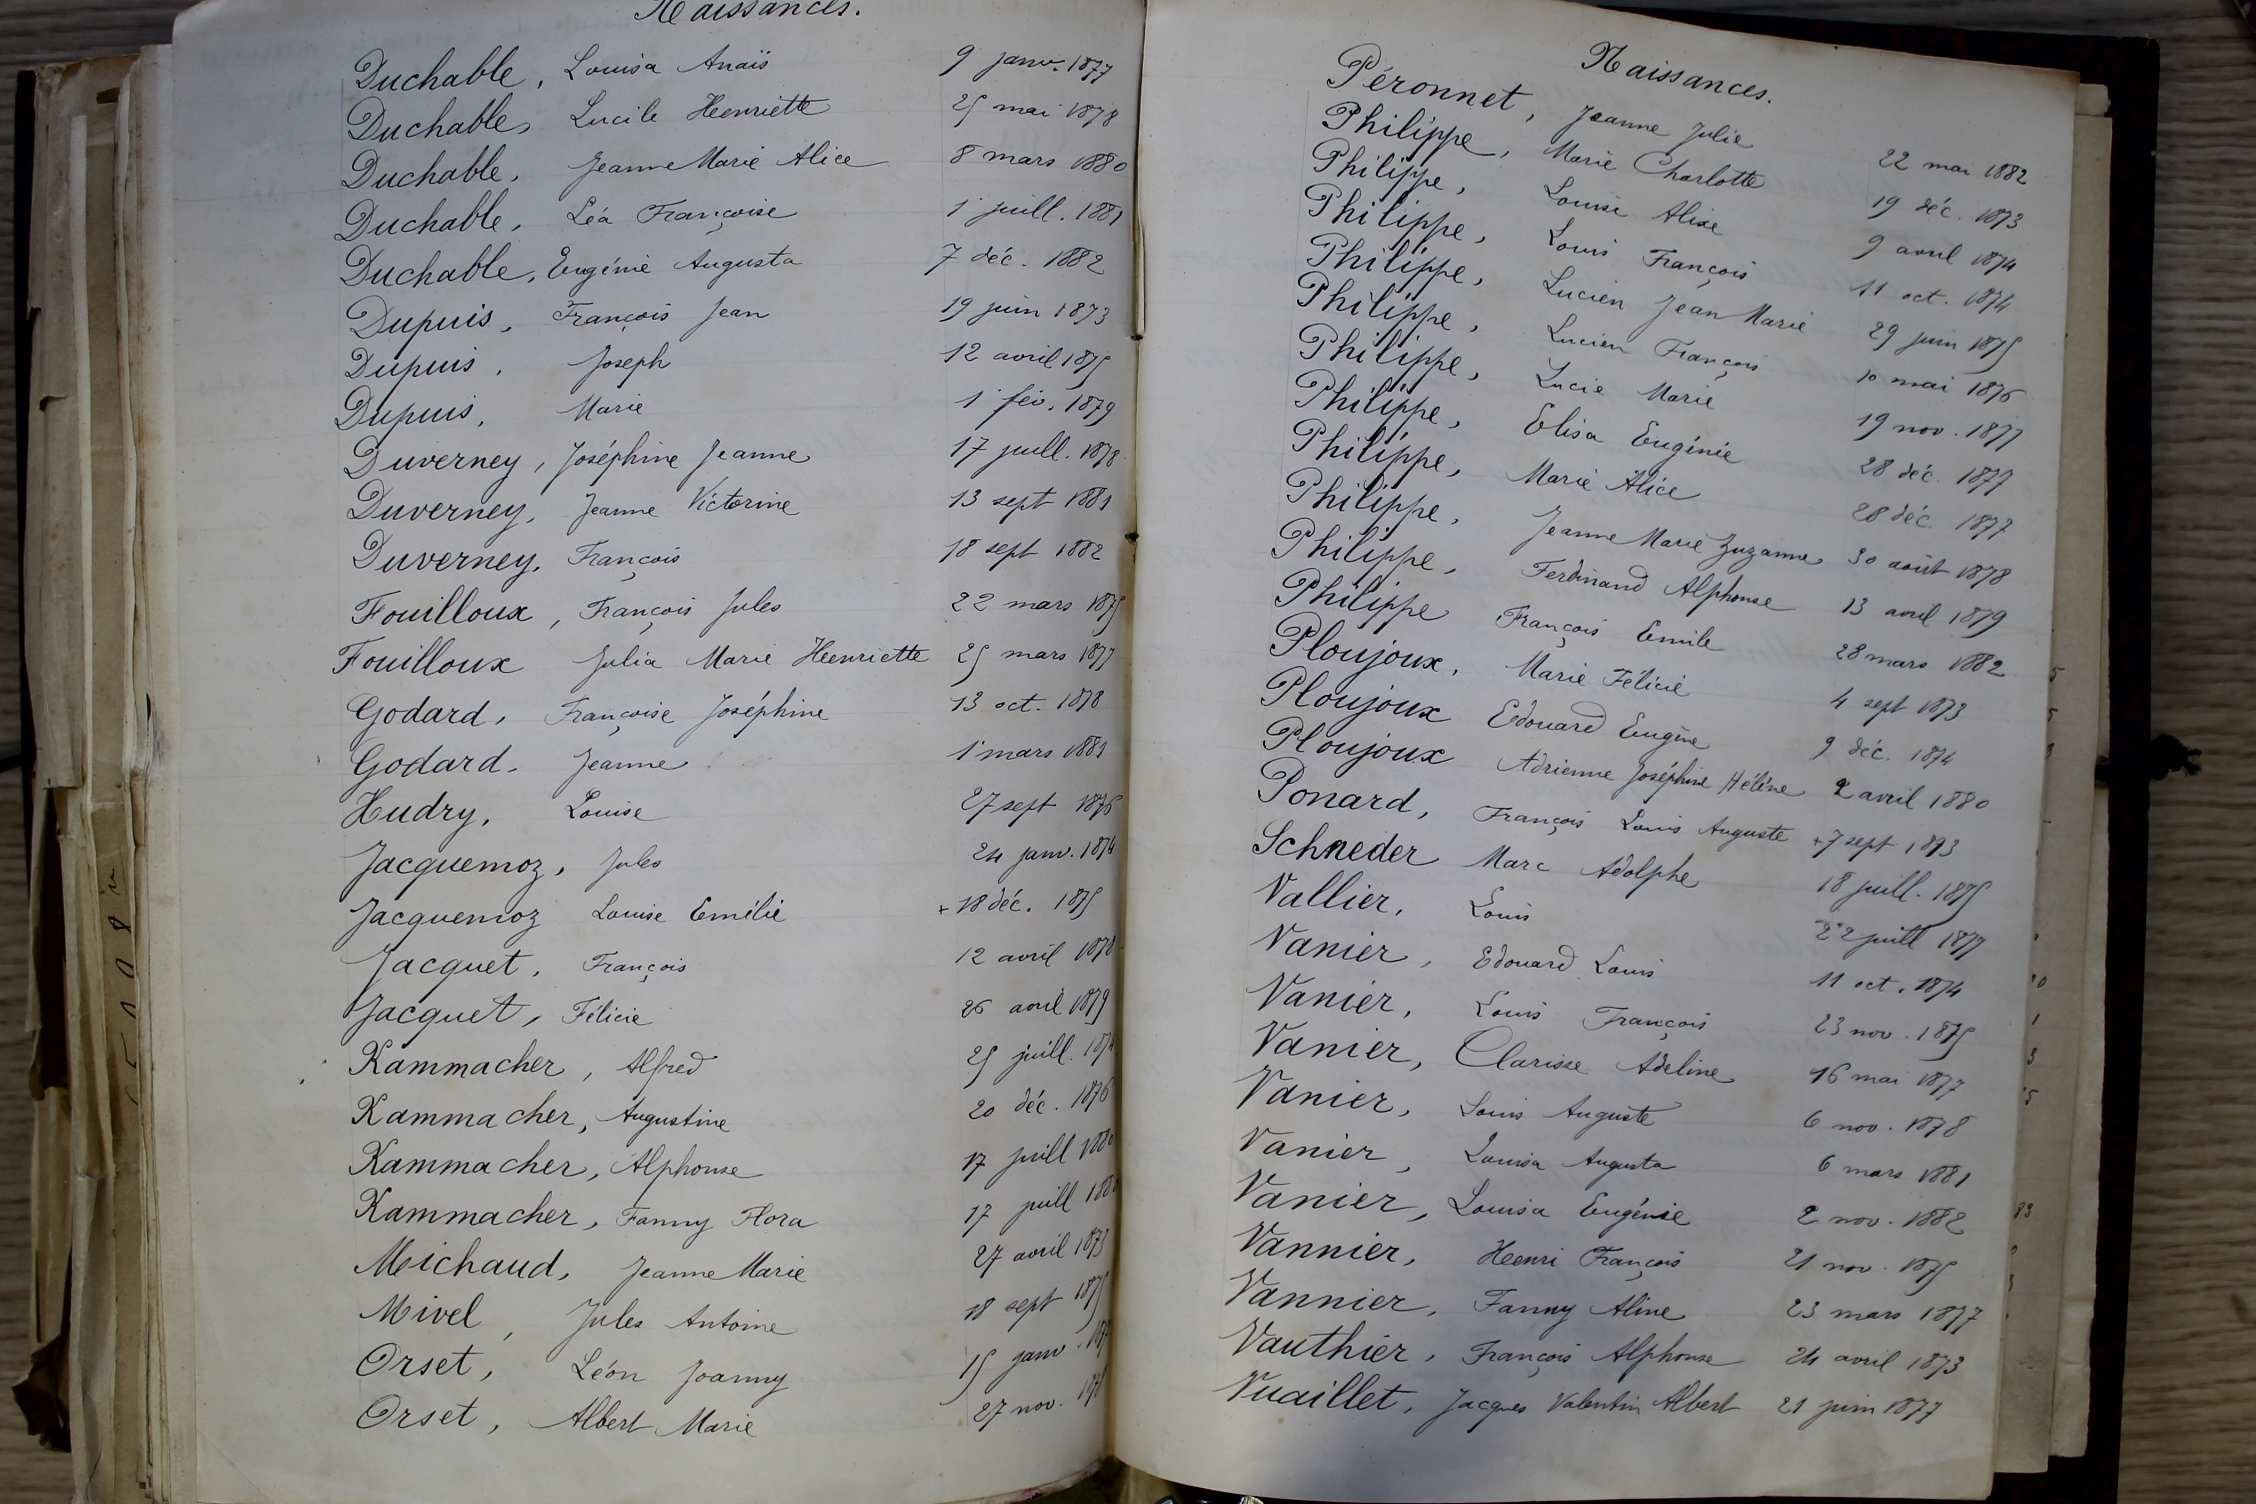 Naissances.
Duchable, Louisa Anaïs 9 janv. 1877
Duchable, Lucile Henriette 25 mai 1878
Duchable, Jeanne Marie Alice 8 mars 1880
Duchable, Léa Françoise 1 juill. 1881
Duchable, Eugénie Augusta 7 déc. 1882
Dupuis, François Jean 19 juin 1873
Dupuis, Joseph 12 avril 1875
Dupuis, Marie 1 fév. 1879
Duverney, Joséphine Jeanne 17 juill. 1878
Duverney, Jeanne Victorine 13 sept 1881
Duverney, François 18 sept 1882
Fouilloux, François Jules 22 mars 1875
Fouilloux Julia Marie Henriette 25 mars 1877
Godard, Françoise Joséphine 13 oct. 1878
Godard. Jeanne 1 mars 1881
Hudry, Louise 27 sept 1876
Jacquemoz, Jules 24 janv. 1874
Jacquemoz Louise Emélie + 18 déc. 1875
Jacquet, François 12 avril 1878
Jacquet, Félicie 26 avril 1879
Kammacher, Alfred 25 juill.
Kammacher, Augustine 20 déc. 1876
Kammacher, Alphonse 17 juill 1880
Kammacher, Fanny Flora 17 juill 1880
Michaud, Jeanne Marie 27 avril 1873
Mivel, Jules Antoine 18 sept 1875
Orset, Léon Joanny 15 janv.
Orset, Albert Marie 27 nov.
Naissances.
Péronnet, Jeanne Julie 22 mai 1882
Philippe, Marie Charlotte 19 déc. 1873
Philippe, Louise Alixe 9 avril 1874
Philippe, Louis François 11 oct. 1874
Philippe, Lucien Jean Marie 29 juin 1875
Philippe, Lucien François 10 mai 1876
Philippe, Lucie Marie 19 nov. 1877
Philippe, Elisa Eugénie 28 déc. 1877
Philippe, Marie Alice 28 déc. 1877
Philippe, Jeanne Marie Zuzanne 30 août 1878
Philippe, Ferdinand Alphonse 13 avril 1879
Philippe François Emile 28 mars 1882
Ploujoux, Marie Félicie 4 sept 1873
Ploujoux Edouard Eugène 9 déc. 1874
Ploujoux Adrienne Joséphine Hélène 2 avril 1880
Ponard, François Louis Auguste + 7 sept 1873
Schneder Marc Adolphe 18 juill. 1875
Vallier, Louis 22 juill 1877
Vanier, Edouard Louis 11 oct. 1874
Vanier, Louis François 23 nov. 1875
Vanier, Clarisse Adeline 16 mai 1877
Vanier, Louis Auguste 6 nov. 1878
Vanier, Louisa Augusta 6 mars 1881
Vanier, Louisa Eugénie 2 nov. 1882
Vannier, Henri François 21 nov. 1875
Vannier, Fanny Aline 23 mars 1877
Vauthier, François Alphonse 24 avril 1873
Vuaillet, Jacques Valentin Albert 21 juin 1877